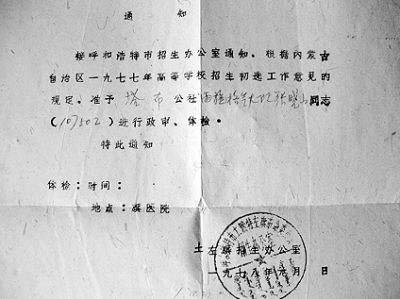 通 知
接呼和浩特市招生办公室通知。根据内蒙古
自治区一九七七年高等学校招生初选工作意见的
规定。准予 塔布 公社 同志
(107502)进行政审、体检。
特此通知
体检：时间：
地点：旗医院
土左旗招生办公室
一九七 年 月 日